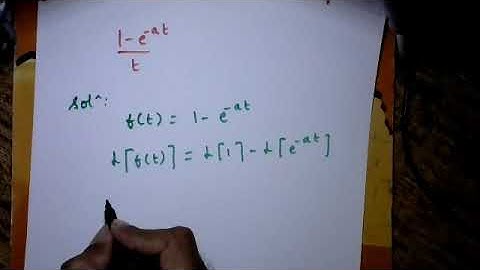 1 - e^-at / t
Sol^n:
f(t) = 1 - e^-at
L[f(t)] = L[1] - L[e^-at]